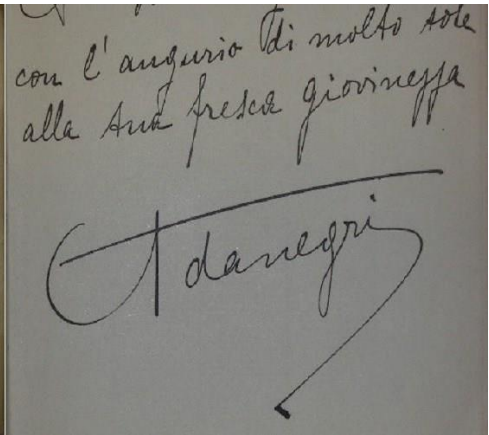 con l'augurio di molto sole
alla sua fresca giovinezza
Adanegri